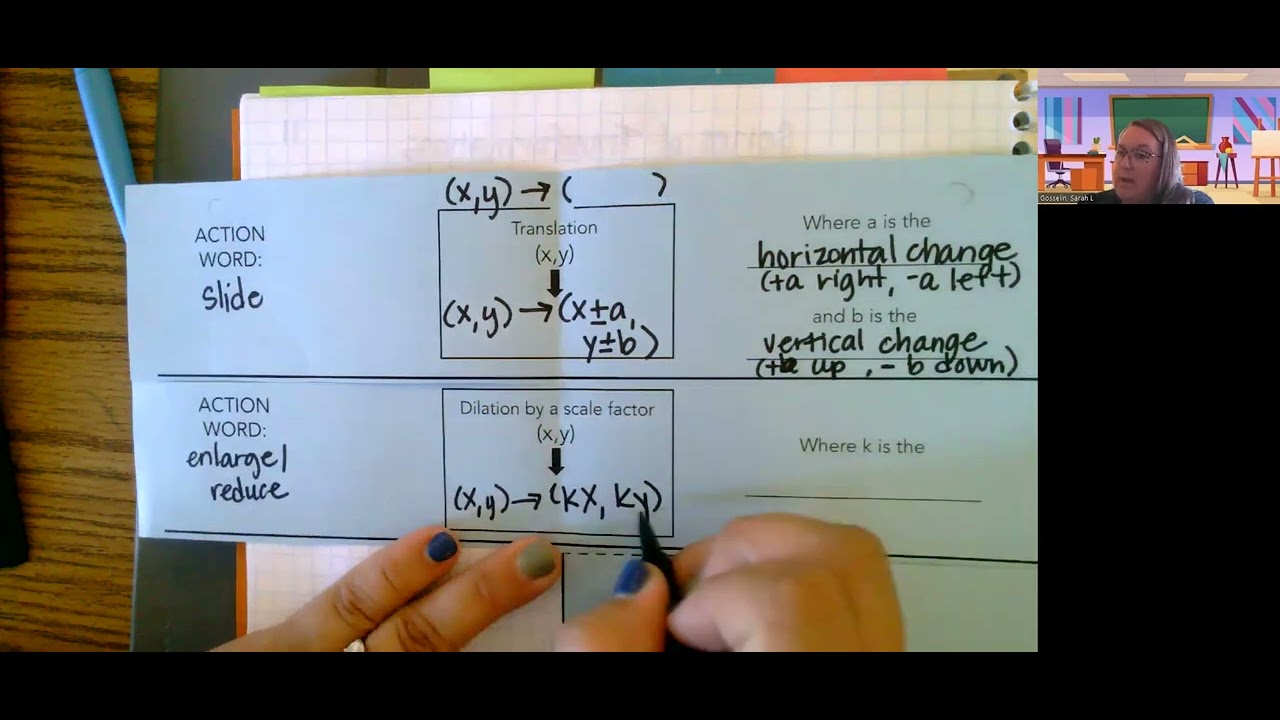 (x,y) → (          )
ACTION
WORD:
slide
Translation
(x,y)
(x,y) → (x±a,
y±b)
Where a is the
horizontal change
(+a right, -a left)
and b is the
vertical change
(+b up, - b down)
ACTION
WORD:
enlarge/
reduce
Dilation by a scale factor
(x,y)
(x,y) → (kx, ky)
Where k is the
Gosselin, Sarah L